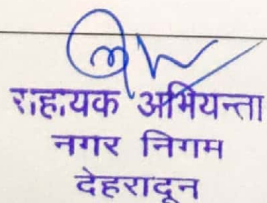 सहायक अभियन्ता
नगर निगम
देहरादून